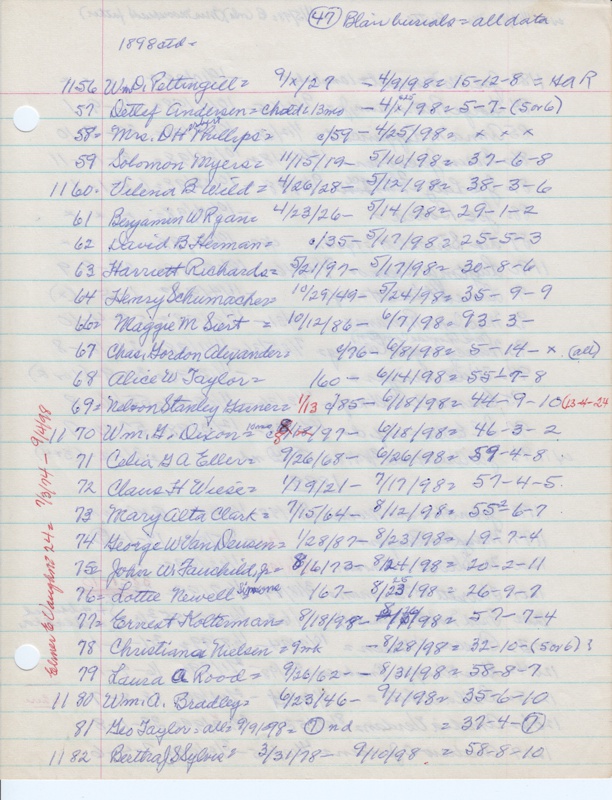 (47) Blair burials = all data
1898 ctd =
1156 Wm D. Pettingill = 9/x/27 - 4/9/98 = 15-12-8 = HAR
57 Detlef Andersen = child = 13 mo - 4/x/98 = 5-7-(5 or 6)
58 = Mrs. DH Phillips = c/59 - 4/25/98 = x x x
59 Solomon Myers = 11/15/19 - 5/10/98 = 37-6-8
1160. Vilena B Wild = 4/26/28 - 5/12/98 = 38-3-6
61 Benjamin W Ryan = 4/23/26 - 5/14/98 = 29-1-2
62 David B Herman = c/35 - 5/17/98 = 25-5-3
63 Harriett Richards = 5/21/97 - 5/17/98 = 30-8-6
64 Henry Schumacher = 10/29/49 - 5/24/98 = 35-9-9
66 = Maggie M Siert = 10/12/86 - 6/7/98 = 93-3-
67 Chas. Gordon Alexander = c/76 - 6/8/98 = 5-14-x (all)
68 Alice W Taylor = /60 - 6/14/98 = 55-7-8
69 = Nelson Stanley 1/13 c/85 - 6/18/98 = 44-9-10 (13-4-24
1170 Wm. G. Dixon = 10 mo /97 - 6/18/98 = 46-3-2
71 Celia G A Eller = 9/26/68 - 6/26/98 = 59-4-8
72 Claus H Wiese = 1/19/21 - 7/17/98 = 57-4-5
73 Mary Alta Clark = 7/15/64 - 8/12/98 = 55-6-7
74 George W Van Deusen = 1/28/87 - 8/23/98 = 19-7-4
75 = John W Fauchild, Jr = 8/6/73 - 8/24/98 = 20-2-11
76 = Lottie Newell Simmons /67 - 8/25/98 = 26-9-7
77 = Ernest Kolterman = 8/18/98 - = 57-7-4
78 Christiana Nielsen = 9 mk - 8/28/98 = 32-10-(5 or 6)
79 Laura A Rood = 9/26/62 - 8/31/98 = 58-8-7
1180 Wm. A. Bradley = 6/23/46 - 9/1/98 = 35-6-10
81 Geo Taylor = all = 9/9/98 = (?) nd = 37-4-(?)
1182 Bertha J S Sylvis = 3/31/78 - 9/10/98 = 58-8-10
Elmer E Vaughn = 24 = 7/3/74 - 9/14/98